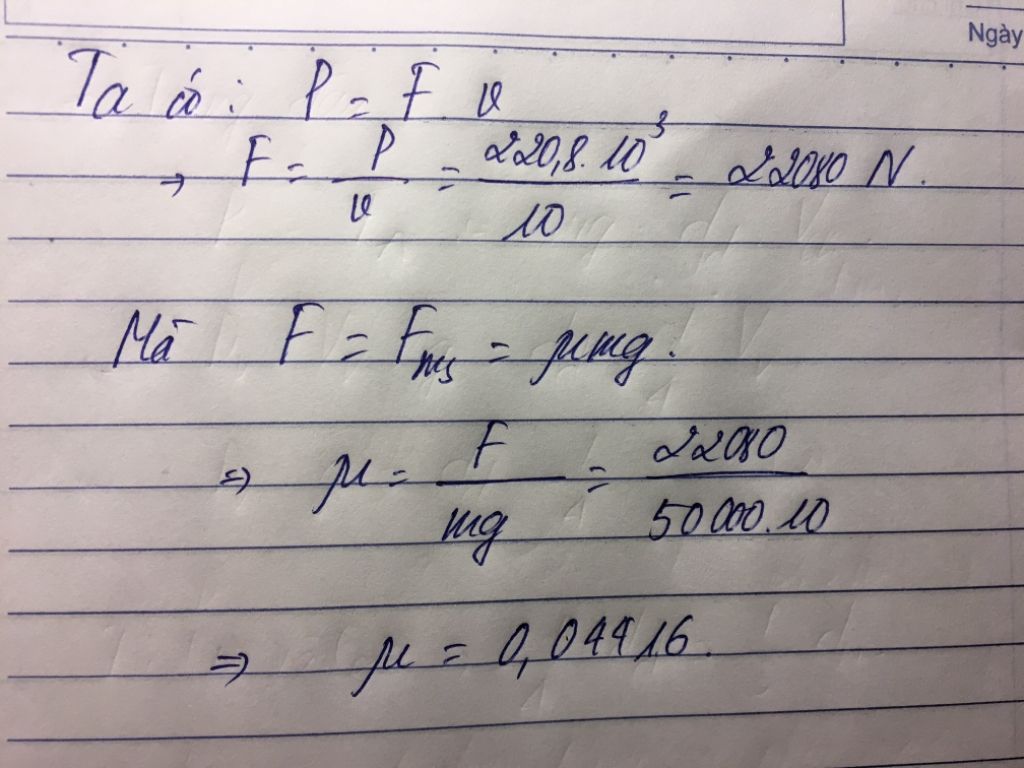 Ngày
Ta có: P = F. v
→ F = P/v = 220,8.10³/10 = 22080 N.
Mà F = Fms = μmg.
=> μ = F/mg = 22080/50000.10
=> μ = 0,04416.